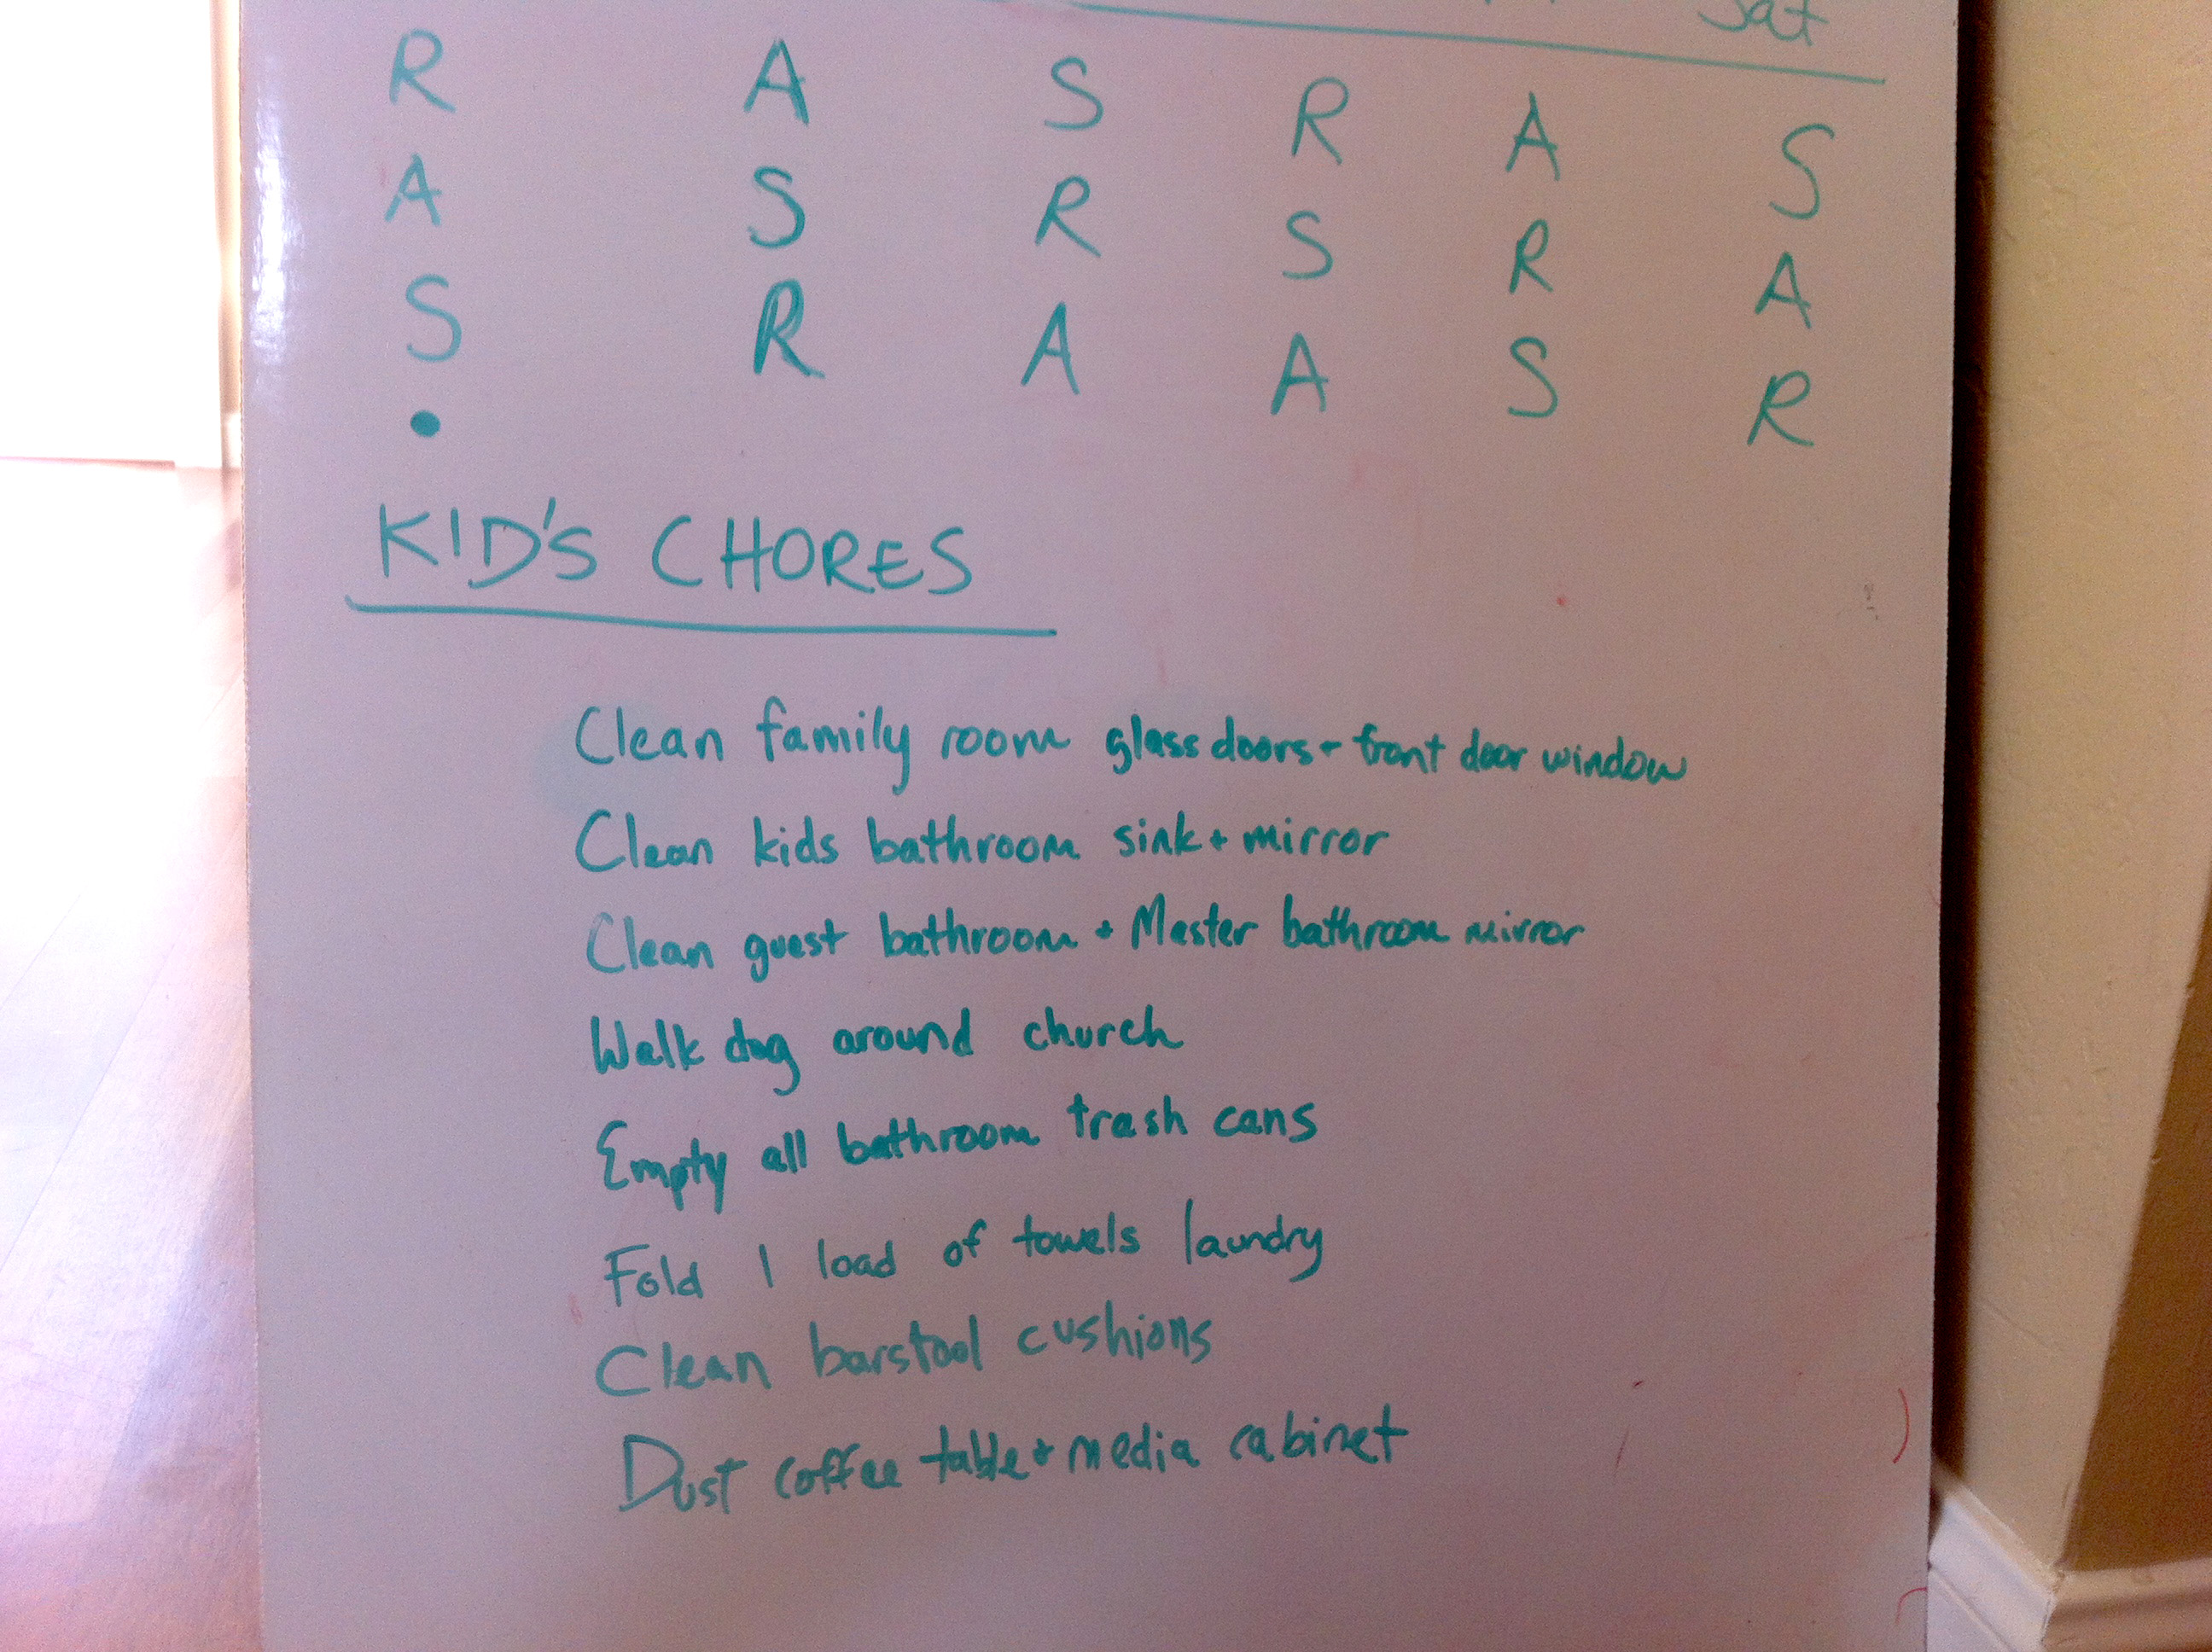 Sat
R A S R A S
A S R S R A
S R A A S R
KID'S CHORES
Clean family room glass doors + front door window
Clean kids bathroom sink + mirror
Clean guest bathroom + Master bathroom mirror
Walk dog around church
Empty all bathroom trash cans
Fold 1 load of towels laundry
Clean barstool cushions
Dust coffee table + media cabinet